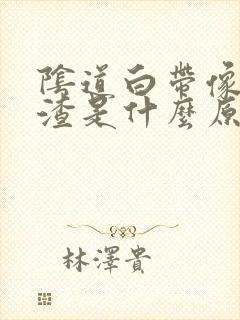 陰道白帶像
渣是什麼原
林澤貴